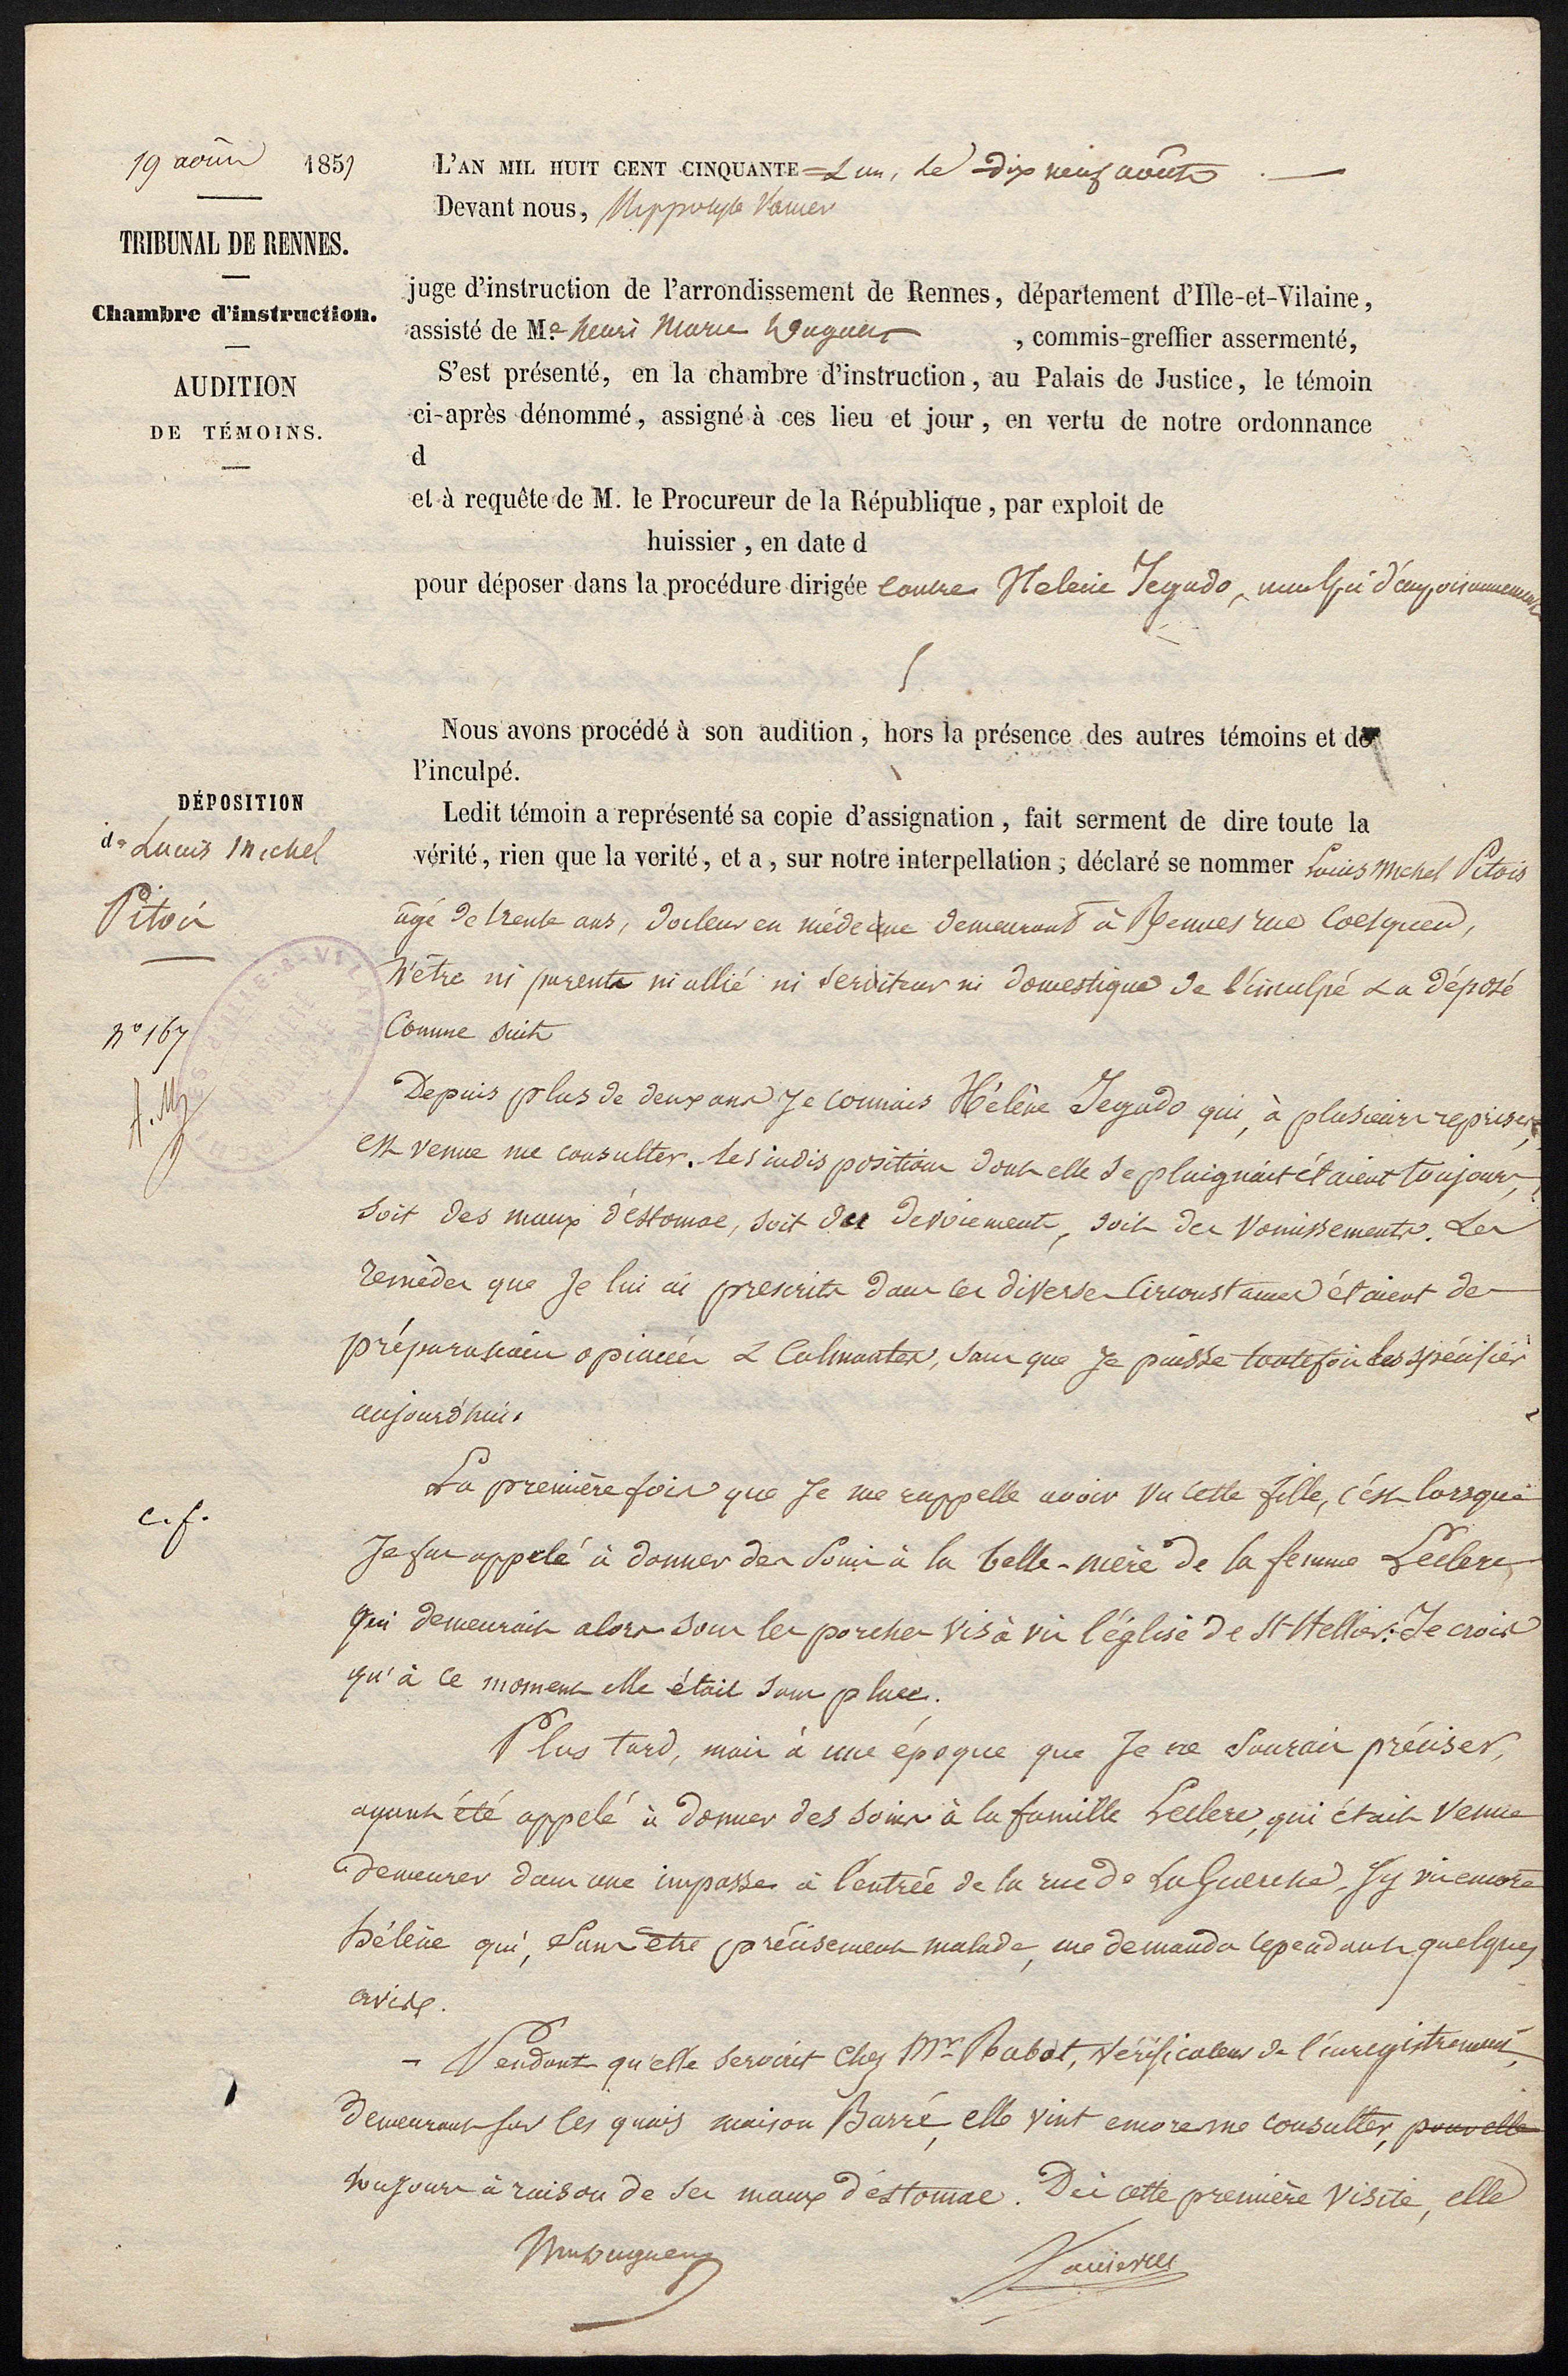 19 août 1851
TRIBUNAL DE RENNES.
Chambre d'instruction.
AUDITION
DE TÉMOINS.
L'AN MIL HUIT CENT CINQUANTE = & un, le dix neuf août
Devant nous, Hippolyte Vannier
juge d'instruction de l'arrondissement de Rennes, département d'Ille-et-Vilaine,
assisté de Me. henri Marie , commis-greffier assermenté,
S'est présenté, en la chambre d'instruction, au Palais de Justice, le témoin
ci-après dénommé, assigné à ces lieu et jour, en vertu de notre ordonnance
d
et à requête de M. le Procureur de la République, par exploit de
huissier, en date d
pour déposer dans la procédure dirigée contre Helene Jegado, inculpée d'empoisonnement
Nous avons procédé à son audition, hors la présence des autres témoins et de
l'inculpé.
DÉPOSITION
de Louis Michel
Pitois
n° 167
Ledit témoin a représenté sa copie d'assignation, fait serment de dire toute la
vérité, rien que la verité, et a, sur notre interpellation, déclaré se nommer Louis Michel Pitois
âgé de trente ans, docteur en médecine demeurant à Rennes rue Coetquen,
N'être ni parent ni allié ni serviteur ni domestique de l'inculpé & a déposé
Comme suit
Depuis plus de deux ans Je connais Hélène Jegado qui, à plusieurs reprises,
est venue me consulter. Les indispositions dont elle se plaignait étaient toujours,
soit des maux d'estomac, soit des devoiements, soit des vomissements. Les
remèdes que Je lui ai prescrits dans ces diverses Circonstances étaient des
préparations opiacées & Calmantes, sans que Je puisse toutefois les spécifier
aujourd'hui.
c.f.
La première fois que Je me rappelle avoir vu cette fille, c'est lorsque
Je fus appelé à donner des Soins à la belle-mère de la femme Leclerc
qui demeurait alors sous les porches vis à vis l'église de St Hellier. Je crois
qu'à ce moment elle était sans place.
Plus tard, mais à une époque que Je ne Saurais préciser,
ayant été appelé à donner des soins à la famille Leclerc, qui était venue
demeurer dans une impasse à l'entrée de la rue de La Guerche, J'y vis encore
hélène qui, Sans être précisément malade, me demanda cependant quelques
avis.
- Pendant qu'elle servait Chez Mr Rabot, vérificateur de l'enregistrement,
demeurant sur les quais maison Barré, elle vint encore me consulter, pour elle
toujours à raison de ses maux d'estomac. Dès cette première Visite, elle